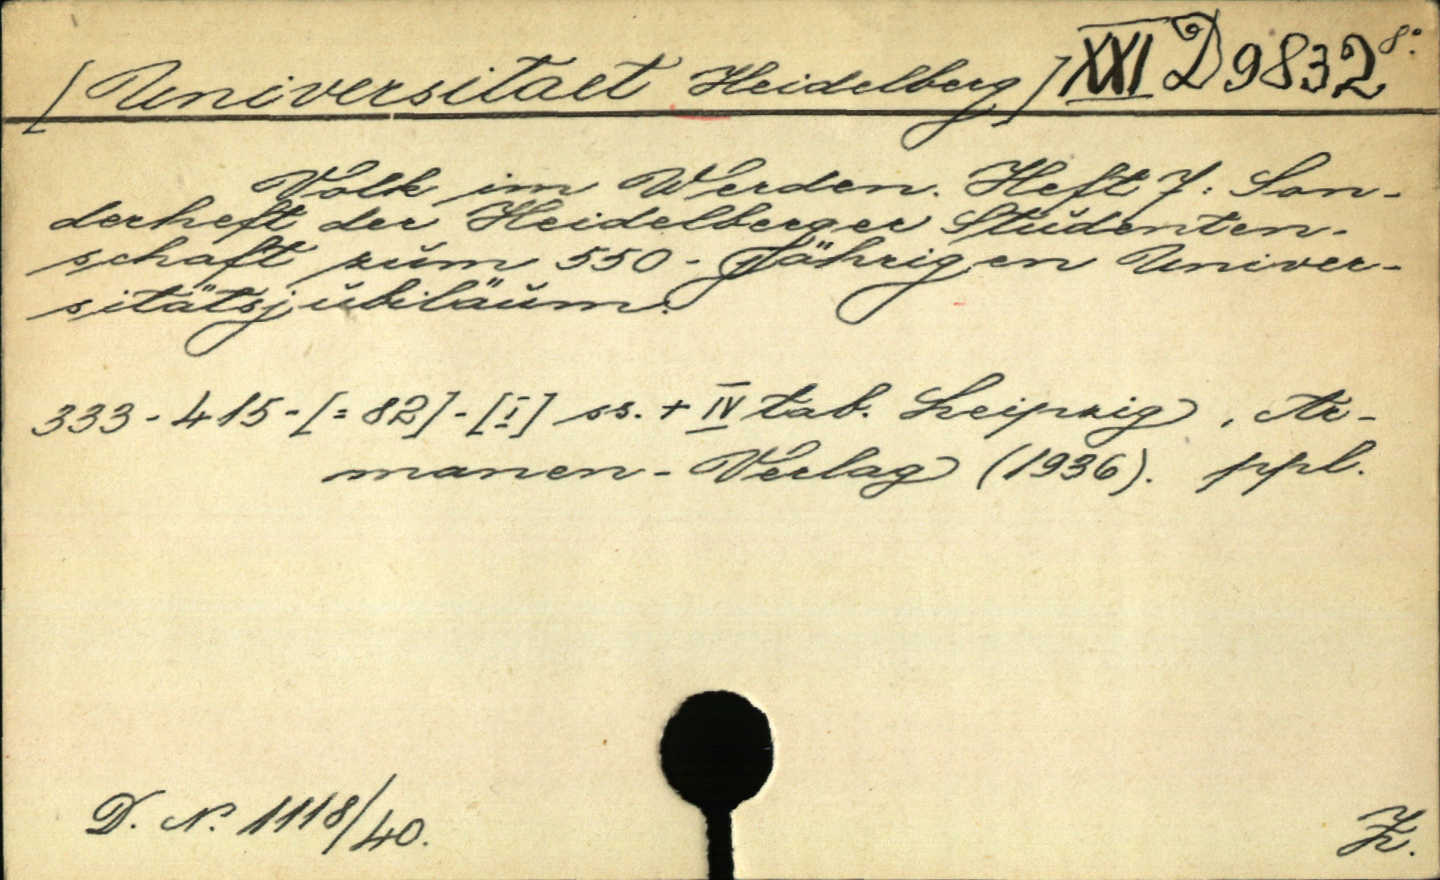 [Universitaet Heidelberg] XXI D 9832 8°.
Volk im Werden. Heft 7: Son-
derheft der Heidelberger Studenten-
schaft zum 550-jährigen Univer-
sitätsjubiläum.
333-415-[=82]-[I] ss. + IV tab. Leipzig, Ar-
manen-Verlag (1936). ppl.
D. N. 1118/40.